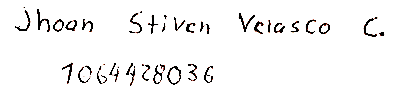 Jhoan Stiven Velasco C.
1064428036